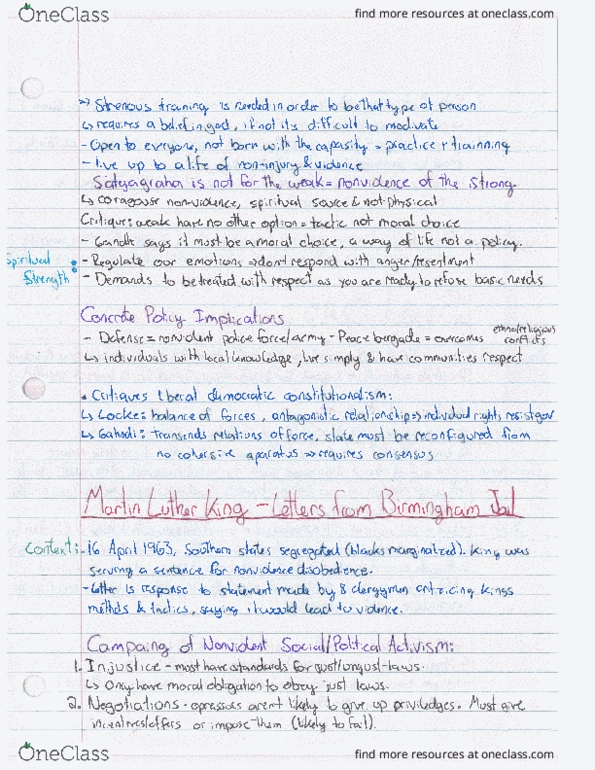 OneClass
find more resources at oneclass.com
=> Strenous training is needed in order to be that type of person
↳ requires a belief in god, if not its difficult to modivate
- Open to everyone, not born with the capasity = practice + trainning
- live up to a life of non-injury & violence
Satyagraha is not for the weak = nonviolence of the strong.
↳ coragouse nonviolence, spiritual source & not physical
Critique: weak have no other option = tactic not moral choice
- Gandhi says it must be a moral choice, a way of life not a policy.
Spiritual Strength:
- Regulate our emotions => don't respond with anger/resentment
- Demands to be treated with respect as you are ready to refuse basic needs
Concrete Policy Implications
- Defense = nonviolent police force/army - Peace bergade = overcomes ethno/religious conflicts
↳ individuals with local knowledge, live simply & have communities respect
• Critiques liberal democratic constitutionalism:
↳ Locke: balance of forces, antagonistic relationship => individual rights resist gov
↳ Gahndi: transends relations of force, state must be reconfigured from
no cohersive apparatus => requires consensus
Martin Luther King - Letters from Birmingham Jail
Context: - 16 April 1963, Southern states segregated (blacks marginalized). King was
serving a sentence for nonviolence disobedience.
- Letter is response to statement made by 8 clergymen critizicing Kings
methds & tactics, saying it would lead to violence.
Campaing of Nonviolent Social/Political Activism:
1. Injustice - most have standards for just/unjust laws.
↳ Only have moral obligation to obey just laws.
2. Negotiations - opressors aren't likely to give up priviledges. Must give
incentives/offers or impose them (likely to fail).
OneClass
find more resources at oneclass.com